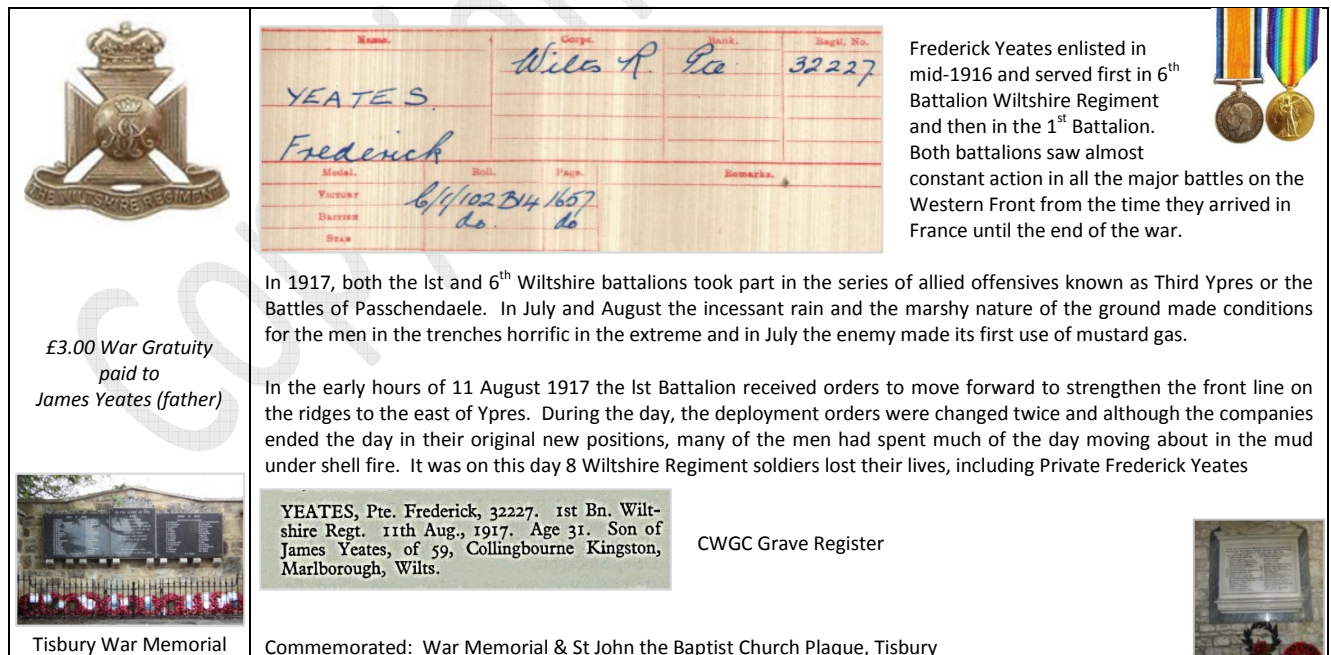 THE WILTSHIRE REGIMENT
£3.00 War Gratuity
paid to
James Yeates (father)
Tisbury War Memorial
Name. Corps. Rank. Regtl. No.
Wilts R. Pte 32227
YEATES.
Frederick
Medal. Roll. Page. Remarks.
VICTORY 6/1/102 B14 1657
BRITISH do. do
STAR
Frederick Yeates enlisted in
mid-1916 and served first in 6th
Battalion Wiltshire Regiment
and then in the 1st Battalion.
Both battalions saw almost
constant action in all the major battles on the
Western Front from the time they arrived in
France until the end of the war.
In 1917, both the lst and 6th Wiltshire battalions took part in the series of allied offensives known as Third Ypres or the
Battles of Passchendaele. In July and August the incessant rain and the marshy nature of the ground made conditions
for the men in the trenches horrific in the extreme and in July the enemy made its first use of mustard gas.
In the early hours of 11 August 1917 the lst Battalion received orders to move forward to strengthen the front line on
the ridges to the east of Ypres. During the day, the deployment orders were changed twice and although the companies
ended the day in their original new positions, many of the men had spent much of the day moving about in the mud
under shell fire. It was on this day 8 Wiltshire Regiment soldiers lost their lives, including Private Frederick Yeates
YEATES, Pte. Frederick, 32227. 1st Bn. Wilt-
shire Regt. 11th Aug., 1917. Age 31. Son of
James Yeates, of 59, Collingbourne Kingston,
Marlborough, Wilts.
CWGC Grave Register
Commemorated: War Memorial & St John the Baptist Church Plaque, Tisbury